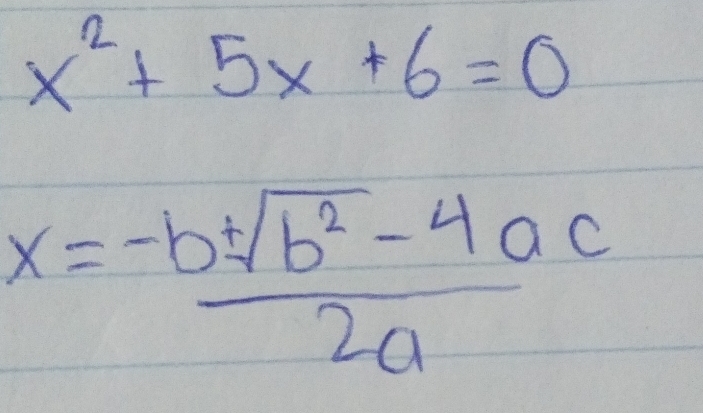 x² + 5x + 6 = 0
x = -b ± √b² - 4ac
2a